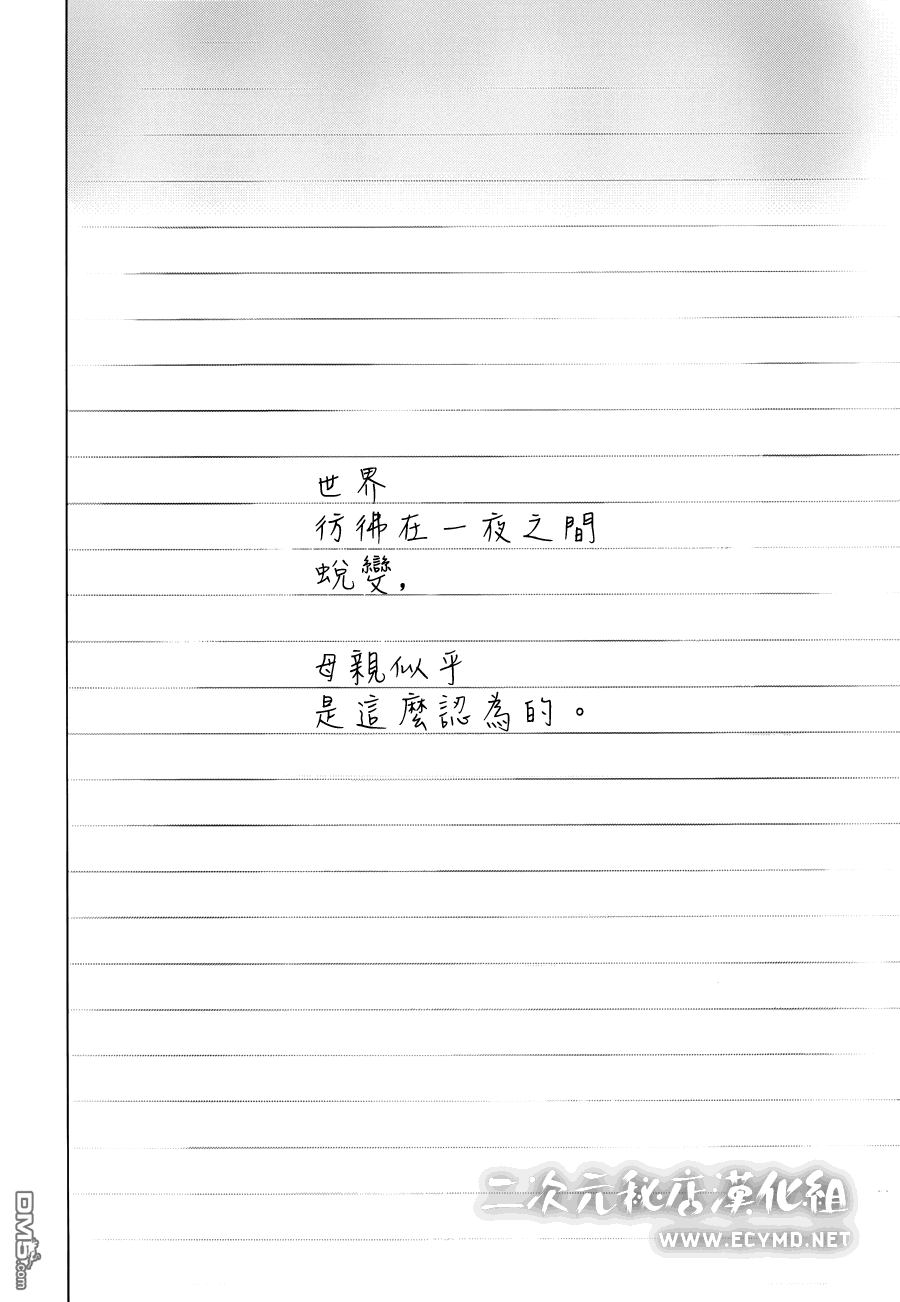 世界
彷彿在一夜之間
蛻變，
母親似乎
是這麼認為的。
二次元秘店漢化組
WWW.ECYMD.NET
DM5.com